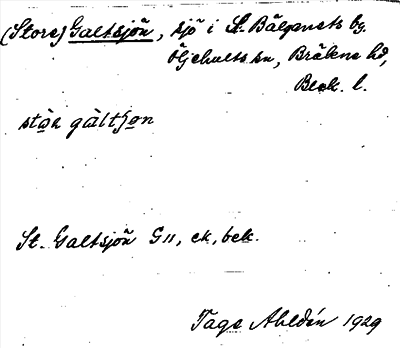 (Store) Galtsjön, sjö i St. Bälganets by.
Öljehults sn, Bräkne hd,
Blek. l.
stọ̀n gàltʃọn
St. Galtsjön G11, ek, bek.
Tage Ahldén 1929